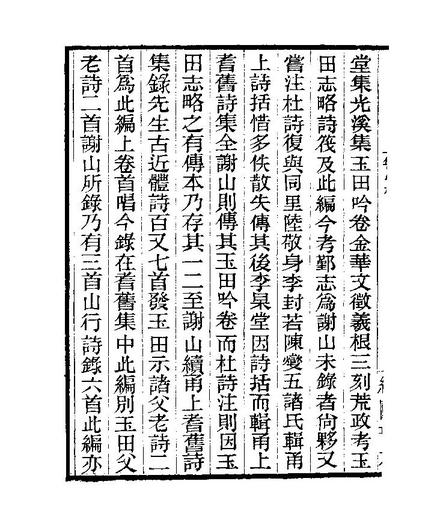 堂集光溪集玉田吟卷金華文徵義根三刻荒政考玉
田志略詩筏及此編今考鄞志為謝山未錄者尙夥又
嘗注杜詩復與同里陸敬身李封若陳燮五諸氏輯甬
上詩括惜多佚散失傳其後李杲堂因詩括而輯甬上
耆舊詩集全謝山則傳其玉田吟卷而杜詩注則因玉
田志略之有傳本乃存其一二至謝山續甬上耆舊詩
集錄先生古近體詩百又七首發玉田示諸父老詩二
首為此編上卷首唱今錄在耆舊集中此編別玉田父
老詩二首謝山所錄乃有三首山行詩錄六首此編亦